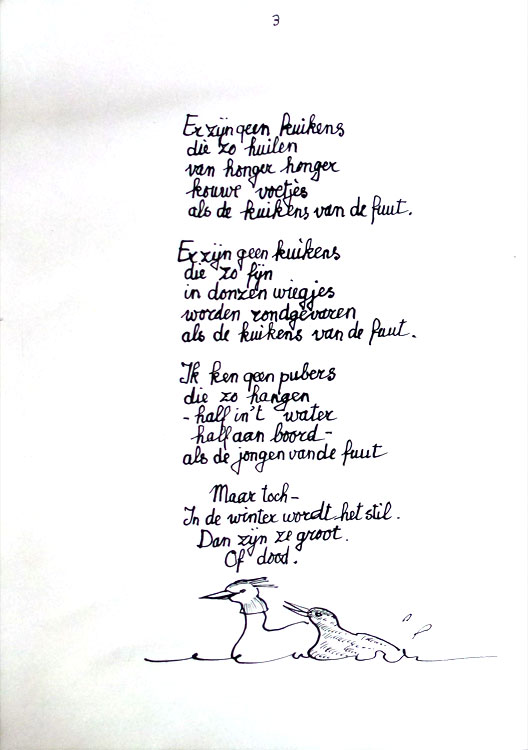 3
Er zijn geen kuikens
die zo huilen
van honger honger
kouwe voetjes
als de kuikens van de fuut.
Er zijn geen kuikens
die zo fijn
in donzen wiegjes
worden rondgevaren
als de kuikens van de fuut.
Ik ken geen pubers
die zo hangen
- half in't water
half aan boord -
als de jongen van de fuut
Maar toch -
In de winter wordt het stil.
Dan zijn ze groot.
Of dood.